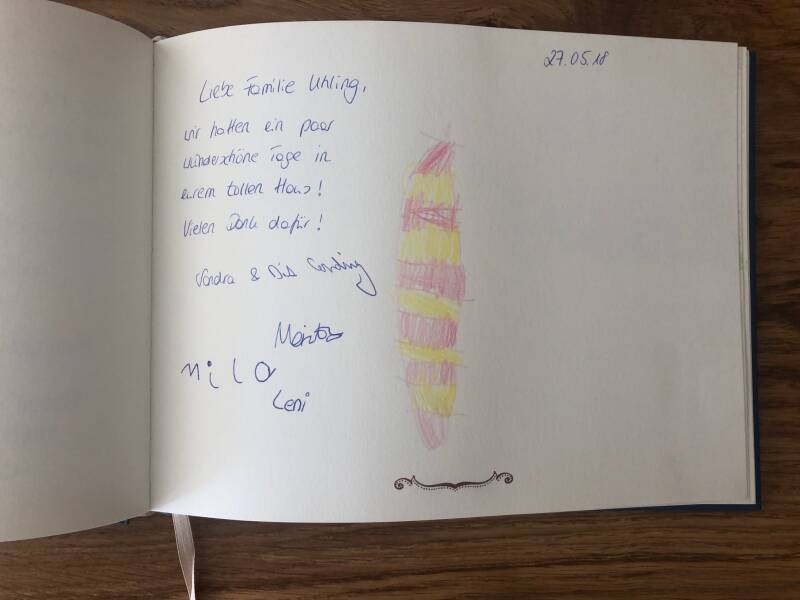 27.05.18
Liebe Familie Uhling,
wir hatten ein paar
wunderschöne Tage in
eurem tollen Haus!
Vielen Dank dafür!
&
Moritz
nilo
Leni